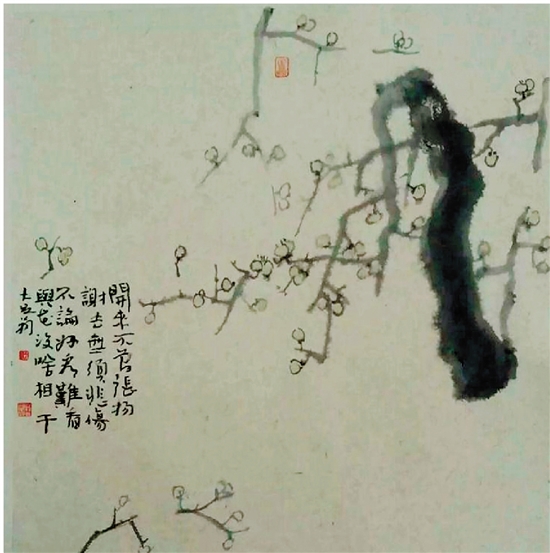 開來不曾張揚
謝去無須悲傷
不論好看難看
與花沒啥相干